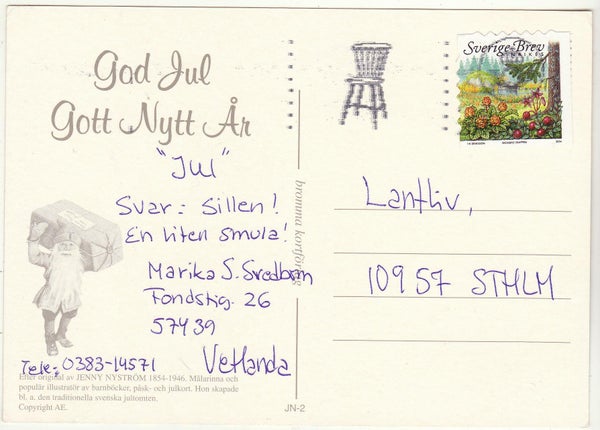 God Jul
Gott Nytt År
"Jul"
Svar: Sillen!
En liten smula!
Marika S. Svedbom
Fondstig. 26
574 39
Vetlanda
Tele: 0383-14571
Efter original av JENNY NYSTRÖM 1854-1946. Målarinna och
populär illustratör av barnböcker, påsk- och julkort. Hon skapade
bl. a. den traditionella svenska jultomten.
Copyright AE.
JN-2
bromma kortförlag
Sverige Brev
INRIKES
Lantliv,
109 57 STHLM